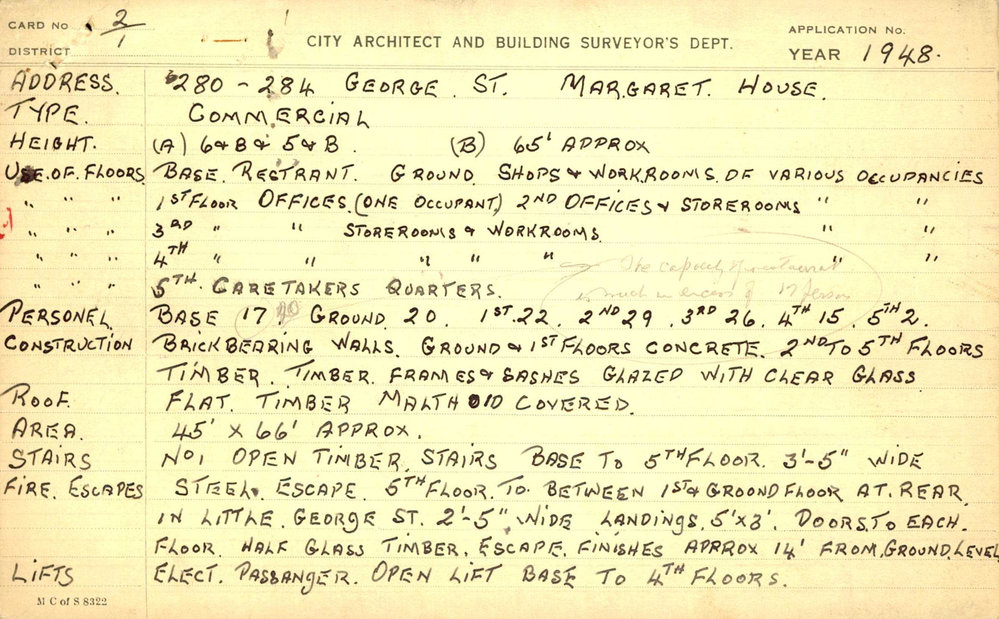 CARD No 2/1
CITY ARCHITECT AND BUILDING SURVEYOR'S DEPT.
APPLICATION No.
DISTRICT
YEAR 1948.
ADDRESS. 280-284 GEORGE. ST. MARGARET. HOUSE.
TYPE. COMMERCIAL
HEIGHT. (A) 6&B & 5&B. (B) 65' APPROX
USE.OF.FLOORS BASE. RESTRANT. GROUND. SHOPS & WORKROOMS. OF VARIOUS OCCUPANCIES
" " " 1ST FLOOR OFFICES.(ONE OCCUPANT) 2ND OFFICES & STOREROOMS " "
" " " 3RD " " STOREROOMS & WORKROOMS. " "
" " " 4TH " " " " " " "
The capacity of restaurant
" " " 5TH CARETAKERS QUARTERS.
is much in excess of 17 person
PERSONEL. BASE 17. 90 GROUND. 20. 1ST.22. 2ND 29. 3RD 26. 4TH 15. 5TH 2.
CONSTRUCTION BRICK BEARING WALLS. GROUND & 1ST FLOORS CONCRETE. 2ND TO 5TH FLOORS
TIMBER. TIMBER. FRAMES & SASHES GLAZED WITH CLEAR GLASS
ROOF. FLAT. TIMBER MALTHOID COVERED.
AREA. 45' X 66' APPROX.
STAIRS NO1 OPEN TIMBER. STAIRS BASE TO 5TH FLOOR. 3'-5" WIDE
FIRE. ESCAPES STEEL. ESCAPE. 5TH FLOOR. TO. BETWEEN 1ST & GROUND FLOOR AT. REAR
IN LITTLE. GEORGE ST. 2'-5" WIDE LANDINGS. 5'X3'. DOORS. TO EACH.
FLOOR. HALF GLASS TIMBER. ESCAPE. FINISHES APPROX 14' FROM. GROUND. LEVEL
LIFTS ELECT. PASSANGER. OPEN LIFT BASE TO 4TH FLOORS.
M C of S 8322